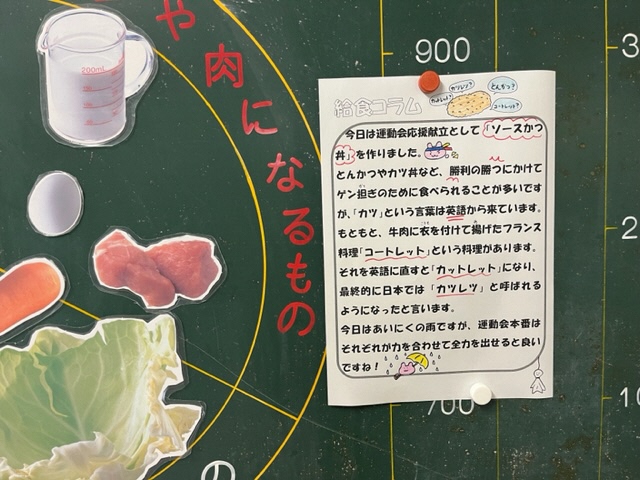 や
肉になるもの
200mL
900
3
2
700
10
の
給食コラム
カツレツ?
とんかつ?
コートレット?
今日は運動会応援献立として「ソースかつ
丼」を作りました。
とんかつやカツ丼など、勝利の勝つにかけて
ゲン担ぎのために食べられることが多いです
が、「カツ」という言葉は英語から来ています。
もともと、牛肉に衣を付けて揚げたフランス
料理「コートレット」という料理があります。
それを英語に直すと「カットレット」になり、
最終的に日本では「カツレツ」と呼ばれる
ようになったと言います。
今日はあいにくの雨ですが、運動会本番は
それぞれが力を合わせて全力を出せると良い
ですね!